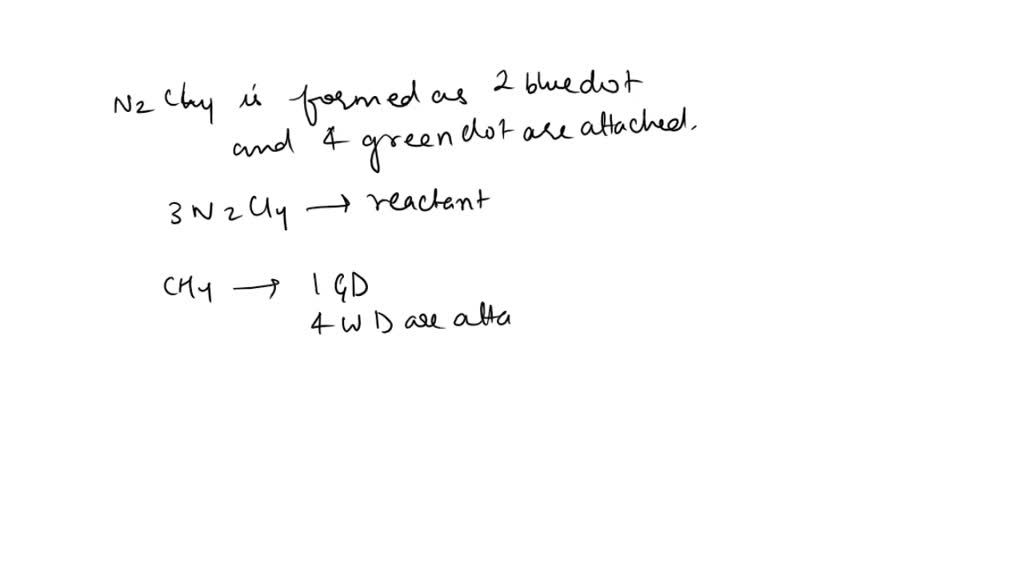 N2 Cl4 is formed as 2 blue dot
and 4 green dot are attached.
3 N2 Cl4 → reactant
CH4 → 1 GD
4 W D are atta